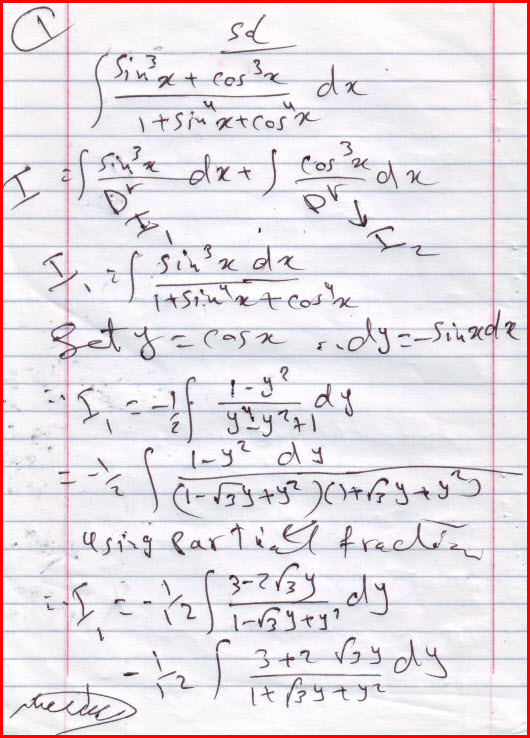 1
sd
∫ (sin³x + cos³x)/(1+sin⁴x+cos⁴x) dx
I = ∫ sin³x/Dr dx + ∫ cos³x/Dr dx
I₁ I₂
I₁ = ∫ sin³x dx/(1+sin⁴x+cos⁴x)
Set y = cosx ∴ dy = -sinxdx
∴ I₁ = -1/2 ∫ (1-y²)/(y⁴-y²+1) dy
= -1/2 ∫ (1-y² dy)/((1-√3y+y²)(1+√3y+y²))
using partial fraction
∴ I₁ = -1/12 ∫ (3-2√3y)/(1-√3y+y²) dy
-1/12 ∫ (3+2√3y)/(1+√3y+y²) dy